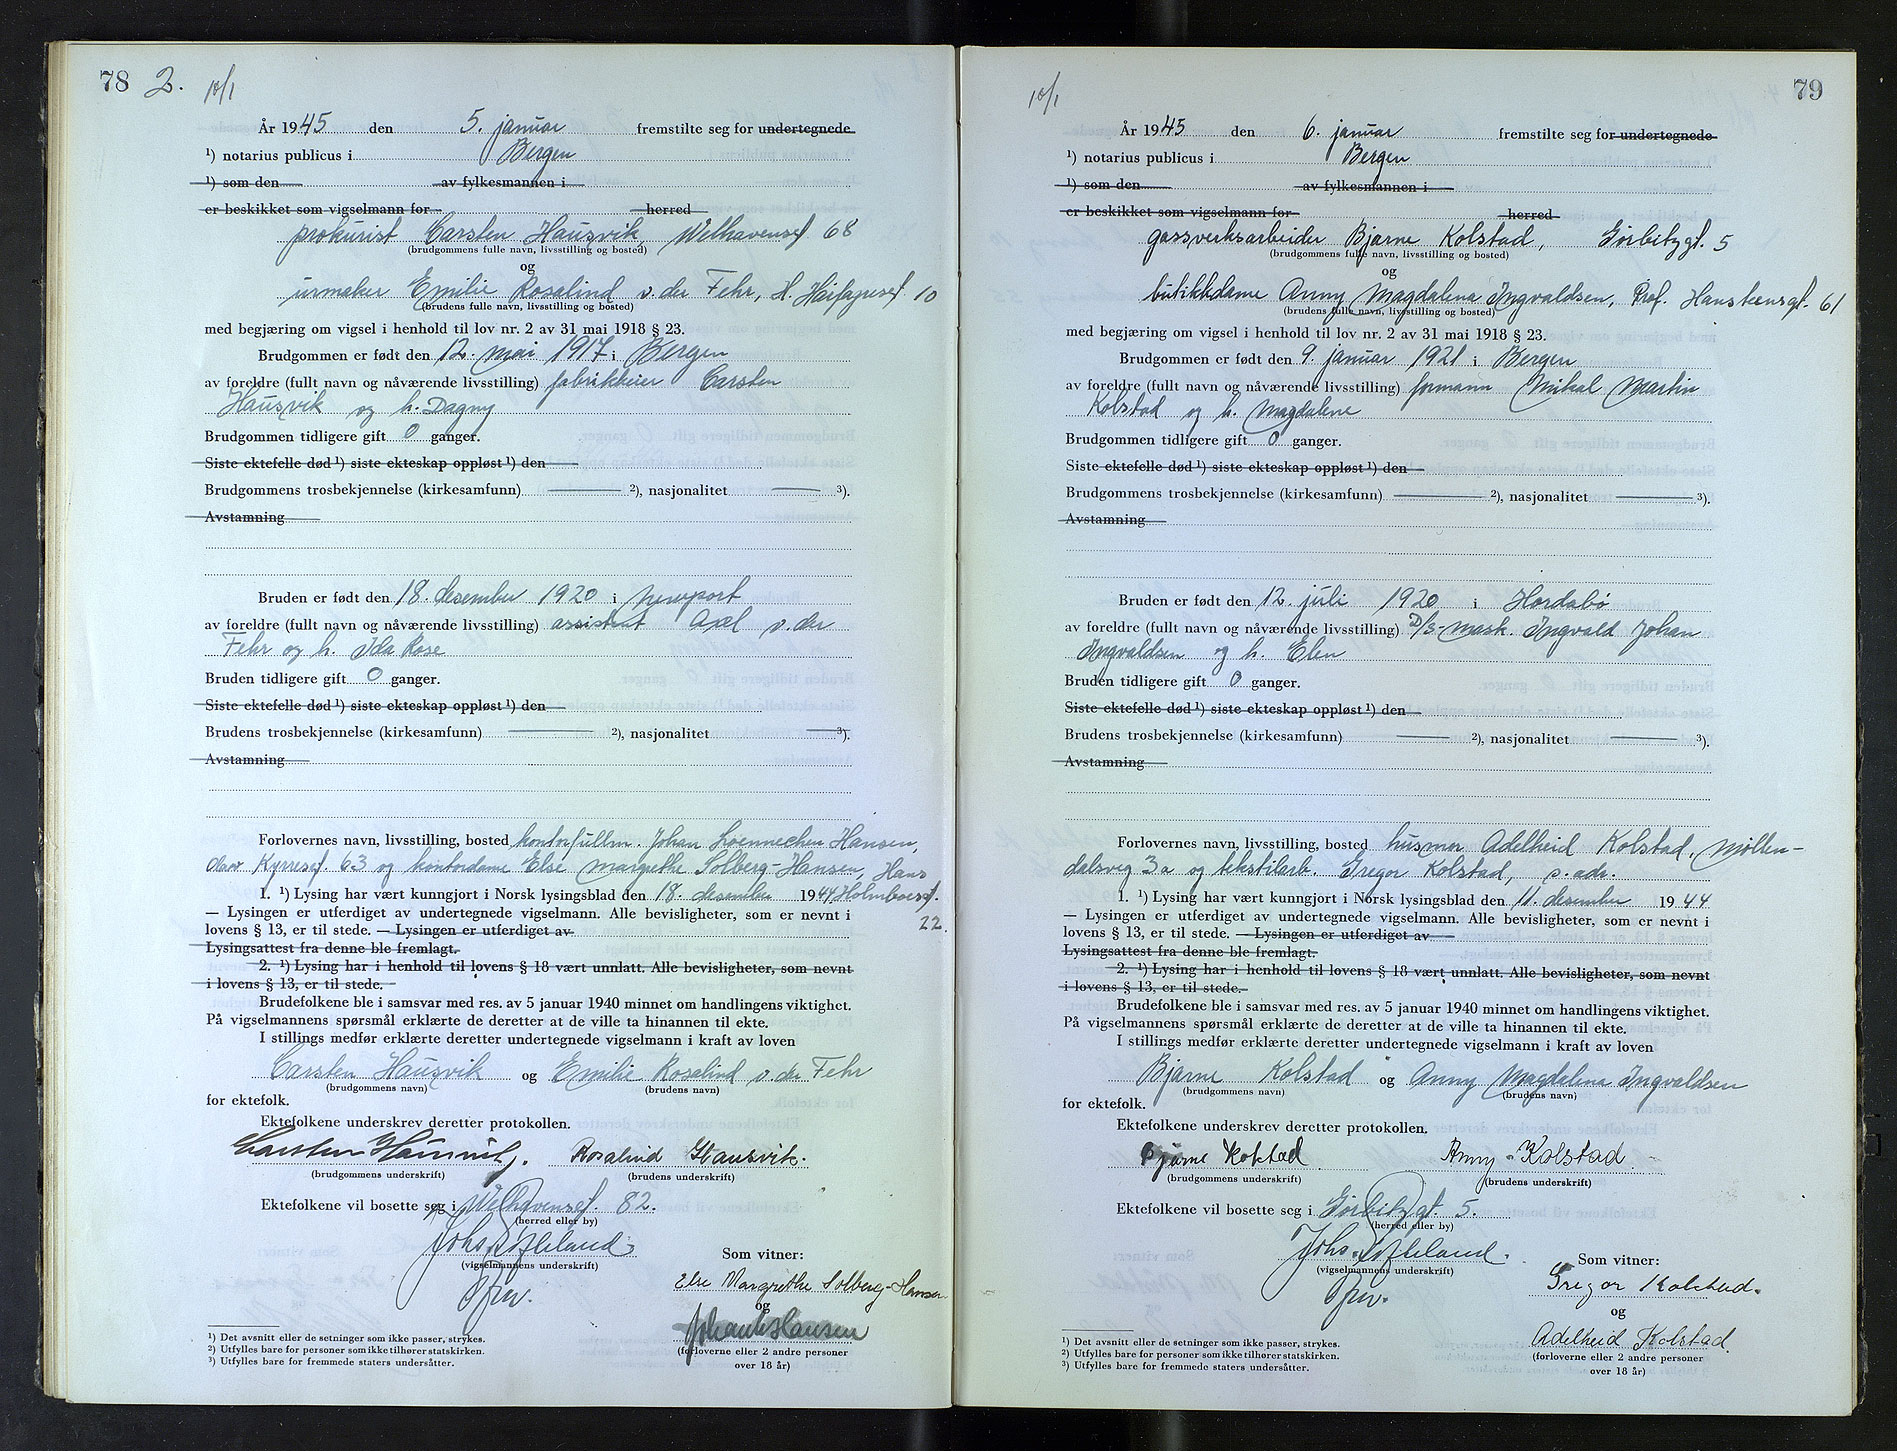 78 2. 10/1
År 1945 den 5. januar fremstilte seg for undertegnede
¹) notarius publicus i Bergen
¹) som den av fylkesmannen i
er beskikket som vigselmann for herred
prokurist Carsten Hausvik, Welhavensgt 68
(brudgommens fulle navn, livsstilling og bosted)
og
urmaker Emilie Rosalind v. der Fehr, H. Hårfagresgt 10
(brudens fulle navn, livsstilling og bosted)
med begjæring om vigsel i henhold til lov nr. 2 av 31 mai 1918 § 23.
Brudgommen er født den 12. mai 1917 i Bergen
av foreldre (fullt navn og nåværende livsstilling) fabrikkeier Carsten
Hausvik og h. Dagny
Brudgommen tidligere gift 0 ganger.
Siste ektefelle død ¹) siste ekteskap oppløst ¹) den
Brudgommens trosbekjennelse (kirkesamfunn) ²), nasjonalitet ³).
Avstamning
Bruden er født den 18. desember 1920 i Newport
av foreldre (fullt navn og nåværende livsstilling) assistent Axel v. der
Fehr og h. Ida Rose
Bruden tidligere gift 0 ganger.
Siste ektefelle død ¹) siste ekteskap oppløst ¹) den
Brudens trosbekjennelse (kirkesamfunn) ²), nasjonalitet ³).
Avstamning
Forlovernes navn, livsstilling, bosted kontorfullm. Johan Loennechen Hansen,
Olav Kyrresgt. 63 og kontordame Else Margrethe Solberg-Hansen, Hans
1. ¹) Lysing har vært kunngjort i Norsk lysingsblad den 18. desember 1944 Holmboesgt.
22.
— Lysingen er utferdiget av undertegnede vigselmann. Alle bevisligheter, som er nevnt i
lovens § 13, er til stede. — Lysingen er utferdiget av
Lysingsattest fra denne ble fremlagt.
2. ¹) Lysing har i henhold til lovens § 18 vært unnlatt. Alle bevisligheter, som nevnt
i lovens § 13, er til stede.
Brudefolkene ble i samsvar med res. av 5 januar 1940 minnet om handlingens viktighet.
På vigselmannens spørsmål erklærte de deretter at de ville ta hinannen til ekte.
I stillings medfør erklærte deretter undertegnede vigselmann i kraft av loven
Carsten Hausvik og Emilie Rosalind v. der Fehr
(brudgommens navn) (brudens navn)
for ektefolk.
Ektefolkene underskrev deretter protokollen.
Carsten Hausvik j. Rosalind Hausvik.
(brudgommens underskrift) (brudens underskrift)
Ektefolkene vil bosette seg i Welhavensgt. 82.
(herred eller by)
Johs.
(vigselmannens underskrift)
Som vitner:
Else Margrethe Solberg-Hansen
og
Johan L. Hansen
(forloverne eller 2 andre personer
over 18 år)
¹) Det avsnitt eller de setninger som ikke passer, strykes.
²) Utfylles bare for personer som ikke tilhører statskirken.
³) Utfylles bare for fremmede staters undersåtter.
10/1 79
År 1945 den 6. januar fremstilte seg for undertegnede
¹) notarius publicus i Bergen
¹) som den av fylkesmannen i
er beskikket som vigselmann for herred
gassverksarbeider Bjarne Kolstad, Gørbitzgt. 5
(brudgommens fulle navn, livsstilling og bosted)
og
butikkdame Anny Magdalena Ingvaldsen, Prof. Hansteensgt. 61
(brudens fulle navn, livsstilling og bosted)
med begjæring om vigsel i henhold til lov nr. 2 av 31 mai 1918 § 23.
Brudgommen er født den 9. januar 1921 i Bergen
av foreldre (fullt navn og nåværende livsstilling) formann Mikal Martin
Kolstad og h. Magdalene
Brudgommen tidligere gift 0 ganger.
Siste ektefelle død ¹) siste ekteskap oppløst ¹) den
Brudgommens trosbekjennelse (kirkesamfunn) ²), nasjonalitet ³).
Avstamning
Bruden er født den 12. juli 1920 i Hordabø
av foreldre (fullt navn og nåværende livsstilling) D/S-mask. Ingvald Johan
Ingvaldsen og h. Elen
Bruden tidligere gift 0 ganger.
Siste ektefelle død ¹) siste ekteskap oppløst ¹) den
Brudens trosbekjennelse (kirkesamfunn) ²), nasjonalitet ³).
Avstamning
Forlovernes navn, livsstilling, bosted husmor Adelheid Kolstad, Møllen-
dalsveg 3a og tekstilarb. Gregor Kolstad, s. adr.
1. ¹) Lysing har vært kunngjort i Norsk lysingsblad den 11. desember 1944
— Lysingen er utferdiget av undertegnede vigselmann. Alle bevisligheter, som er nevnt i
lovens § 13, er til stede. — Lysingen er utferdiget av
Lysingsattest fra denne ble fremlagt.
2. ¹) Lysing har i henhold til lovens § 18 vært unnlatt. Alle bevisligheter, som nevnt
i lovens § 13, er til stede.
Brudefolkene ble i samsvar med res. av 5 januar 1940 minnet om handlingens viktighet.
På vigselmannens spørsmål erklærte de deretter at de ville ta hinannen til ekte.
I stillings medfør erklærte deretter undertegnede vigselmann i kraft av loven
Bjarne Kolstad og Anny Magdalena Ingvaldsen
(brudgommens navn) (brudens navn)
for ektefolk.
Ektefolkene underskrev deretter protokollen.
Bjarne Kolstad Anny Kolstad
(brudgommens underskrift) (brudens underskrift)
Ektefolkene vil bosette seg i Gørbitzgt. 5.
(herred eller by)
Johs.
(vigselmannens underskrift)
Som vitner:
Gregor Kolstad.
og
Adelheid Kolstad.
(forloverne eller 2 andre personer
over 18 år)
¹) Det avsnitt eller de setninger som ikke passer, strykes.
²) Utfylles bare for personer som ikke tilhører statskirken.
³) Utfylles bare for fremmede staters undersåtter.